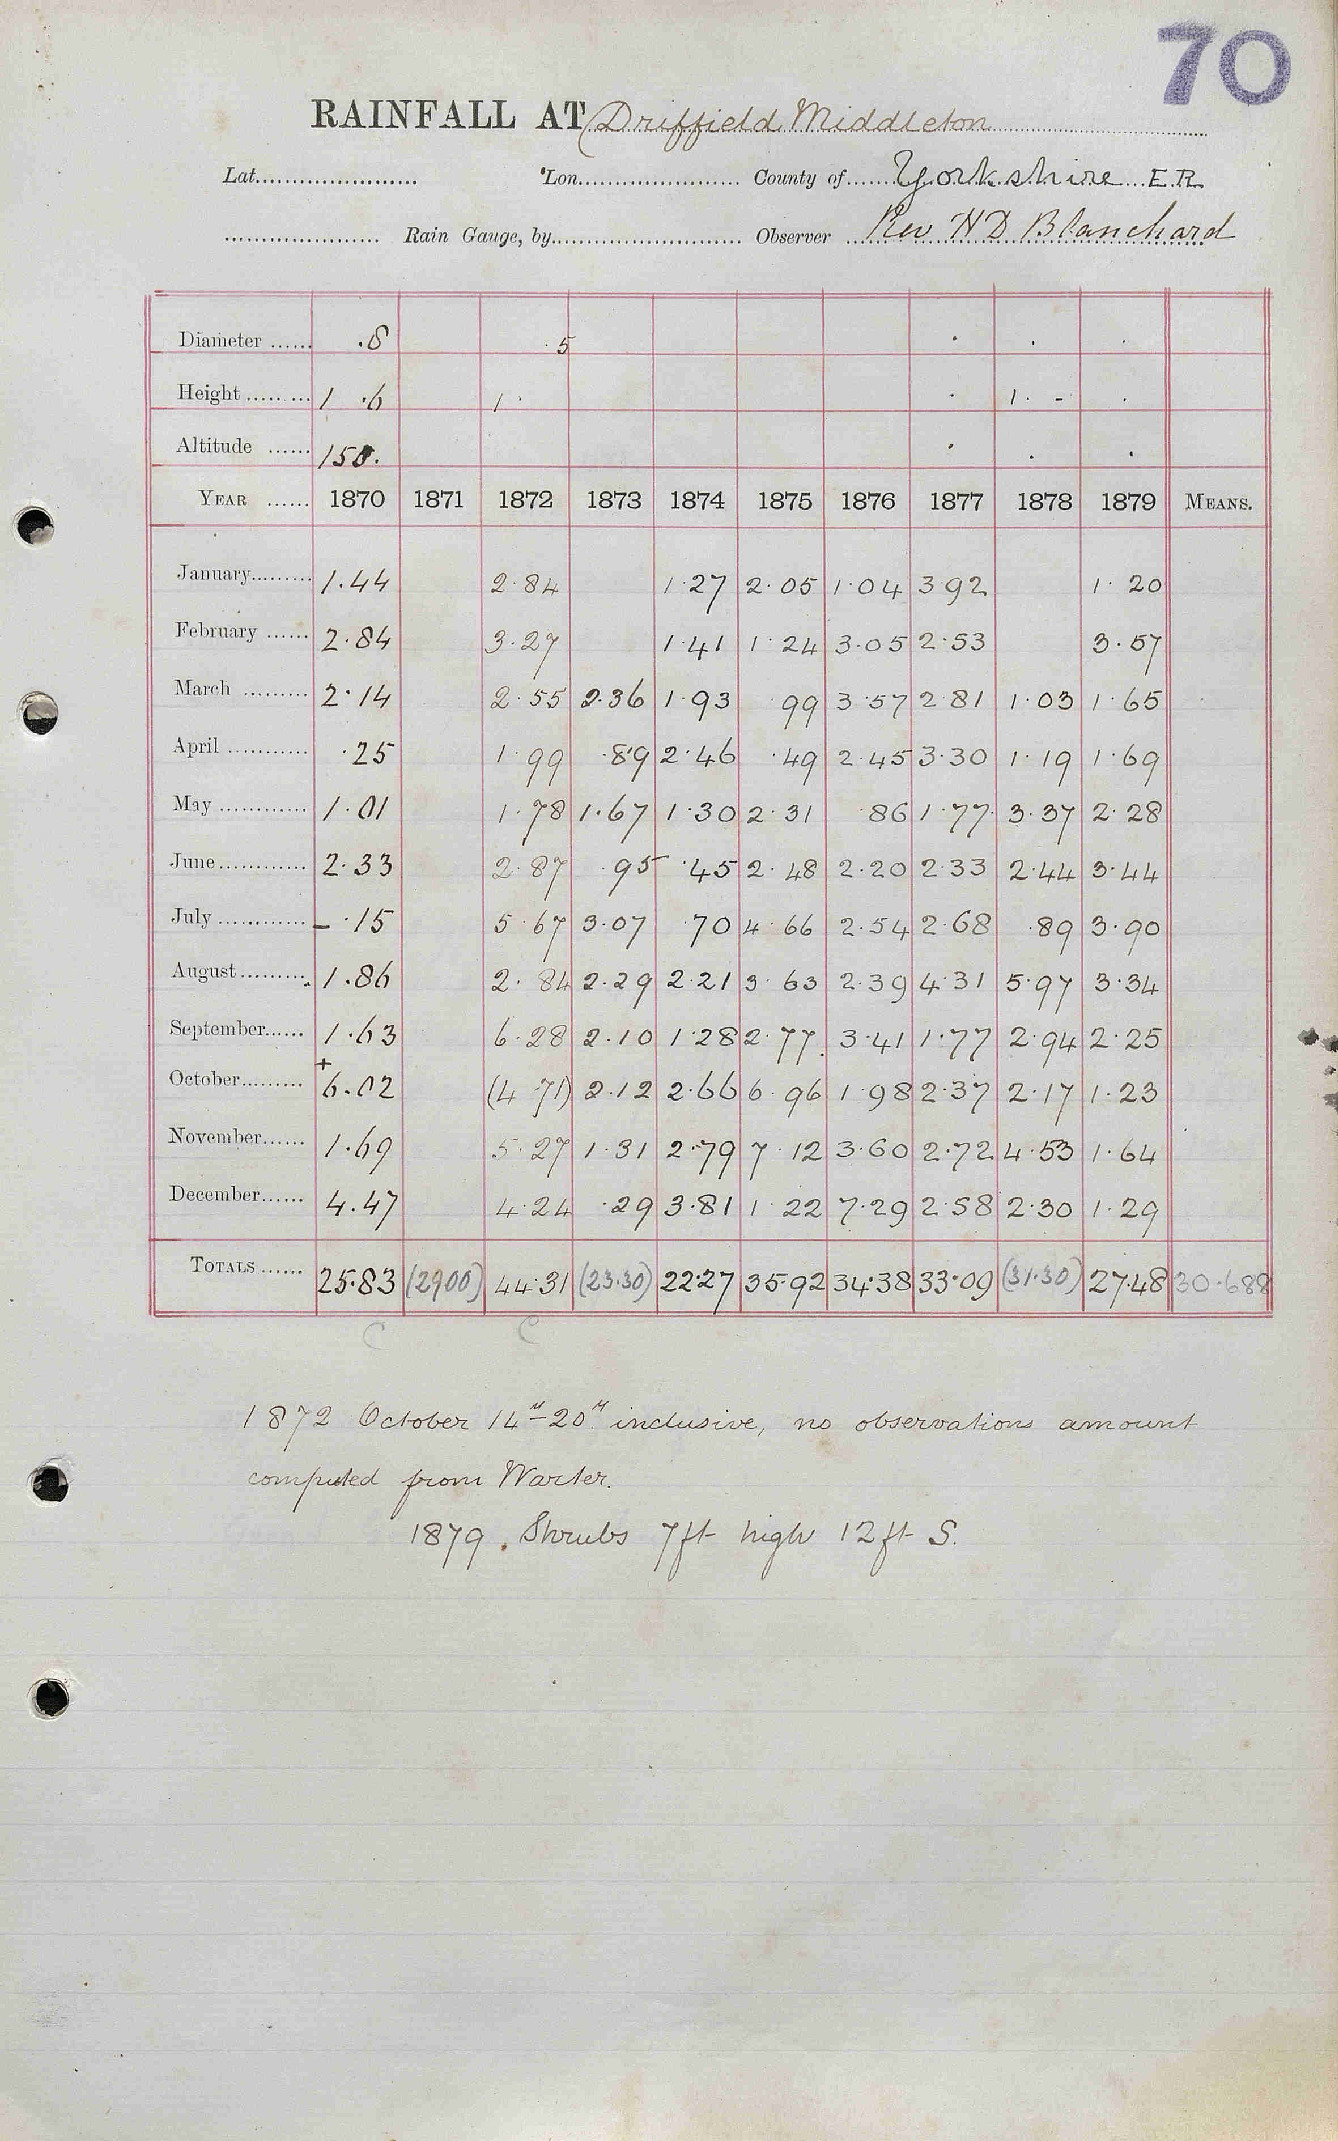 70
RAINFALL AT Driffield Middleton
Lat. Lon. County of Yorkshire E.R.
Rain Gauge, by Observer Rev H D Blanchard
Diameter .8 5
Height 1 .6 1 1. -
Altitude 150.
YEAR 1870 1871 1872 1873 1874 1875 1876 1877 1878 1879 MEANS.
January 1.44 2.84 1.27 2.05 1.04 3.92 1.20
February 2.84 3.27 1.41 1.24 3.05 2.53 3.57
March 2.14 2.55 2.36 1.93 .99 3.57 2.81 1.03 1.65
April .25 1.99 .89 2.46 .49 2.45 3.30 1.19 1.69
May 1.01 1.78 1.67 1.30 2.31 .86 1.77 3.37 2.28
June 2.33 2.87 .95 .45 2.48 2.20 2.33 2.44 3.44
July - .15 5.67 3.07 .70 4.66 2.54 2.68 .89 3.90
August 1.86 2.84 2.29 2.21 3.63 2.39 4.31 5.97 3.34
September 1.63 6.28 2.10 1.28 2.77 3.41 1.77 2.94 2.25
October + 6.02 (4.71) 2.12 2.66 6.96 1.98 2.37 2.17 1.23
November 1.69 5.27 1.31 2.79 7.12 3.60 2.72 4.53 1.64
December 4.47 4.24 .29 3.81 1.22 7.29 2.58 2.30 1.29
TOTALS 25.83 (29.00) 44.31 (23.30) 22.27 35.92 34.38 33.09 (31.30) 27.48 30.688
C C
1872 October 14th-20th inclusive, no observations amount
computed from Warter.
1879. Shrubs 7ft high 12ft S.